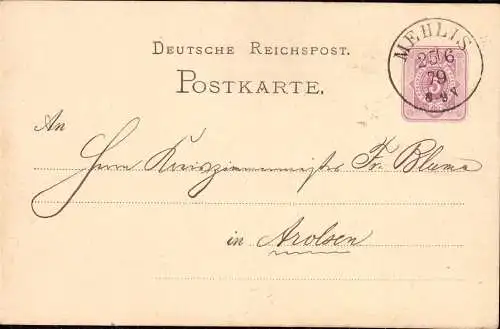 DEUTSCHE REICHSPOST.
POSTKARTE.
MEHLIS
25/6
79
8-9V
An
Herrn Kreiszimmermeister Fr. Blume
in Arolsen